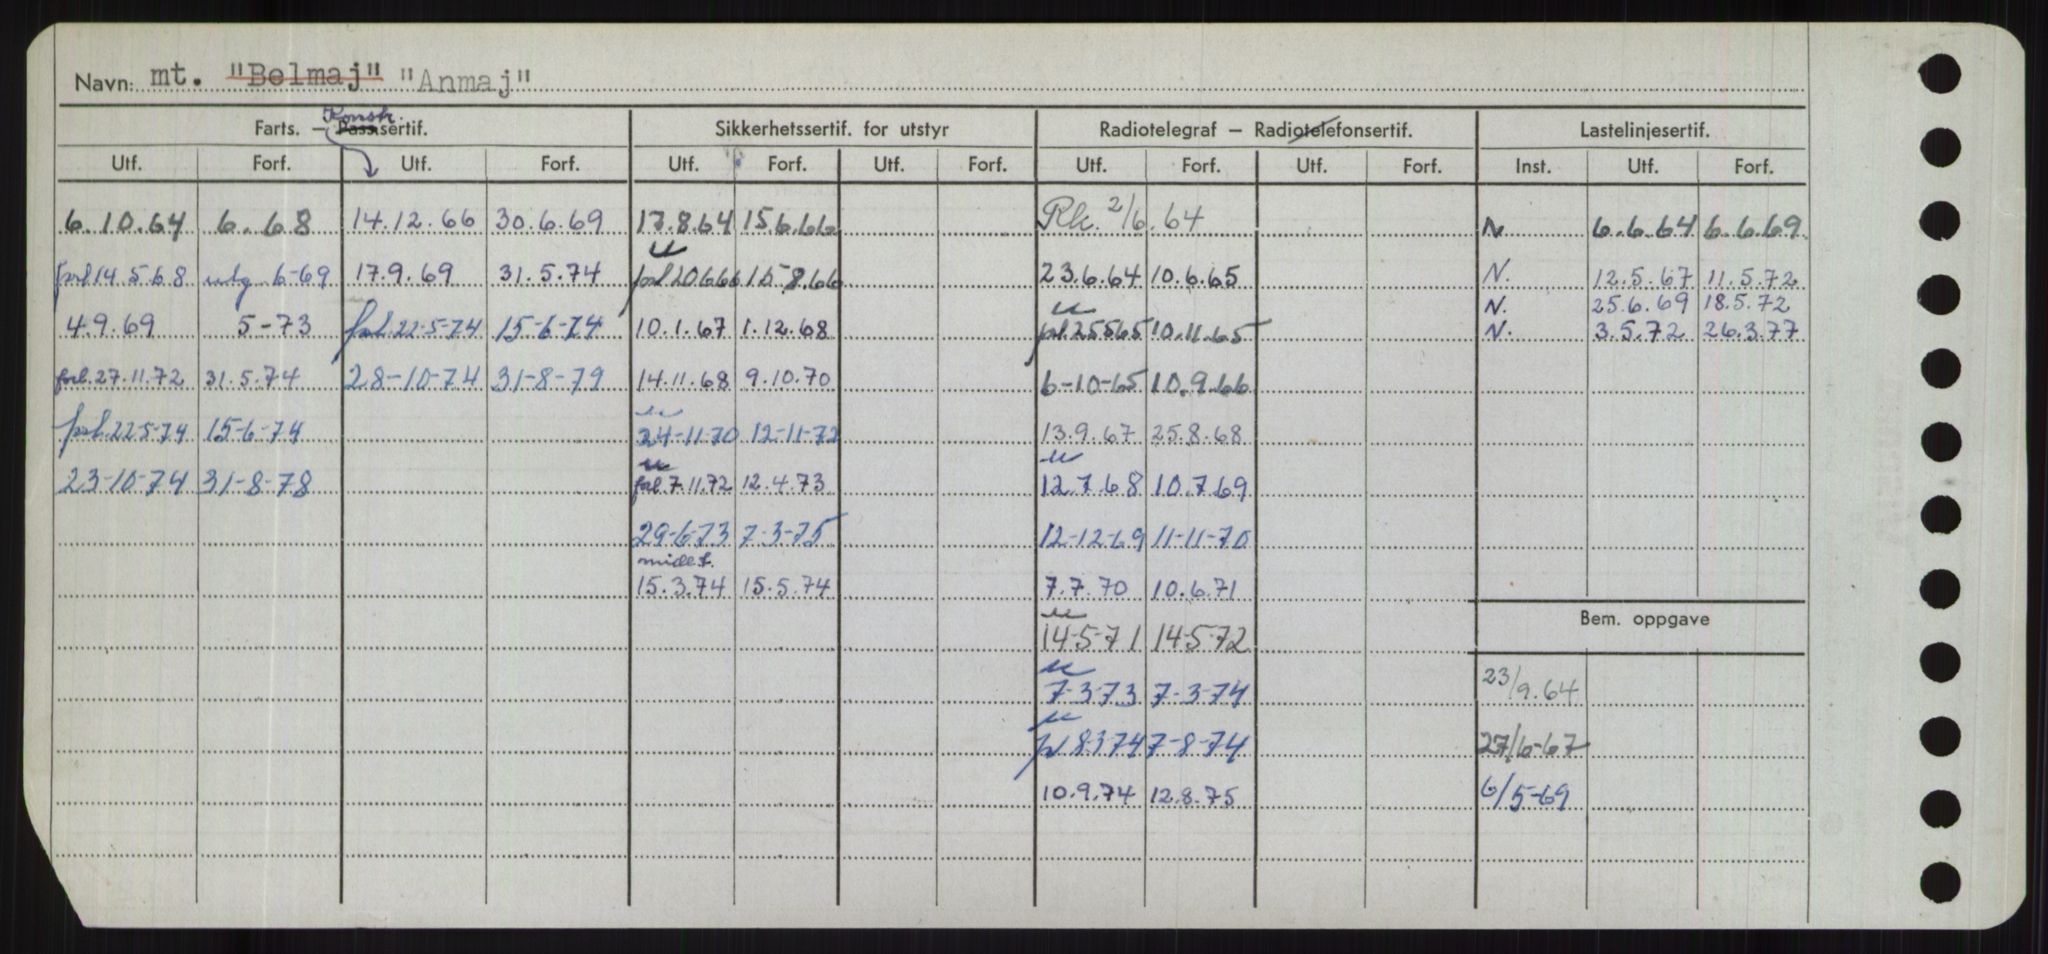 Navn: mt. "Belmaj" "Anmaj"
Konsk.
Farts. – Pass.sertif. Sikkerhetssertif. for utstyr Radiotelegraf – Radiotelefonsertif. Lastelinjesertif.
Utf. Forf. Utf. Forf. Utf. Forf. Utf. Forf. Utf. Forf. Utf. Forf. Inst. Utf. Forf.
6.10.64 6.68 14.12.66 30.6.69 17.8.64 15.6.66 Rk. 2/6.64 N 6.6.64 6.6.69
forl 14.5.68 utg 6-69 17.9.69 31.5.74 forl 20.6.66 15.8.66 23.6.64 10.6.65 N. 12.5.67 11.5.72
N. 25.6.69 18.5.72
4.9.69 5-73 forl. 22-5-74 15-6-74 10.1.67 1.12.68 forl. 25565 10.11.65 N. 3.5.72 26.3.77
forl. 27.11.72 31.5.74 28-10-74 31-8-79 14.11.68 9.10.70 6-10-65 10.9.66
forl. 22-5-74 15-6-74 24-11-70 12-11-72 13.9.67 25.8.68
23-10-74 31-8-78 forl. 7.11.72 12.4.73 12.7.68 10.7.69
29-6-73 7-3-75 12-12-69 11-11-70
midl.
15.3.74 15.5.74 7.7.70 10.6.71
Bem. oppgave
14-5-71 14-5-72
7-3-73 7-3-74 23/9.64
8-3-74 7-8-74 27/6-67
10.9.74 12.8.75 6/5-69